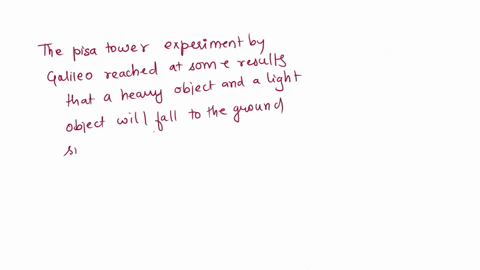 The pisa tower experiment by
Galileo reached at some results
that a heavy object and a light
object will fall to the ground